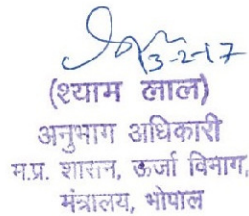 13-2-17
(श्याम लाल)
अनुभाग अधिकारी
म.प्र. शासन, ऊर्जा विभाग,
मंत्रालय, भोपाल